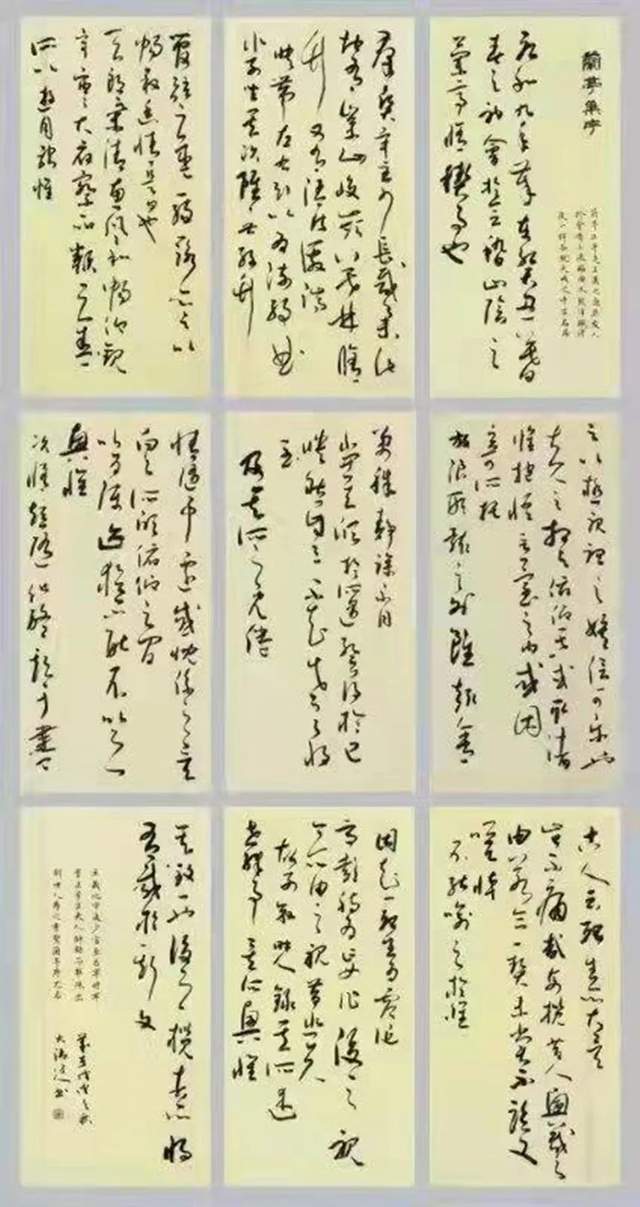 蘭亭集序
永和九年歲在癸丑暮
春之初會於會稽山陰之
蘭亭脩禊事也
群賢畢至少長咸集此
地有崇山峻嶺茂林脩
竹又有清流激湍
映帶左右引以為流觴曲
水列坐其次雖無絲竹
管弦之盛一觴一詠亦足以
暢敘幽情是日也
天朗氣清惠風和暢仰觀
宇宙之大俯察品類之盛
所以遊目騁懷
足以極視聽之娛信可樂也
夫人之相與俯仰一世或取諸
懷抱悟言一室之內或因
寄所托
放浪形骸之外雖趣舍
萬殊靜躁不同
當其欣於所遇暫得於己
快然自足不知老之將
至
及其所之既倦
情隨事遷感慨係之矣
向之所欣俯仰之間
以為陳迹猶不能不以之
興懷
況脩短隨化終期於盡
古人云死生亦大矣
豈不痛哉每攬昔人興感之
由若合一契未嘗不臨文
嗟悼
不能喻之於懷
固知一死生為虛誕
齊彭殤為妄作後之視
今亦由今之視昔悲夫
故列敘時人錄其所述
世殊事異所以興懷
其致一也後之攬者亦將
有感於斯文